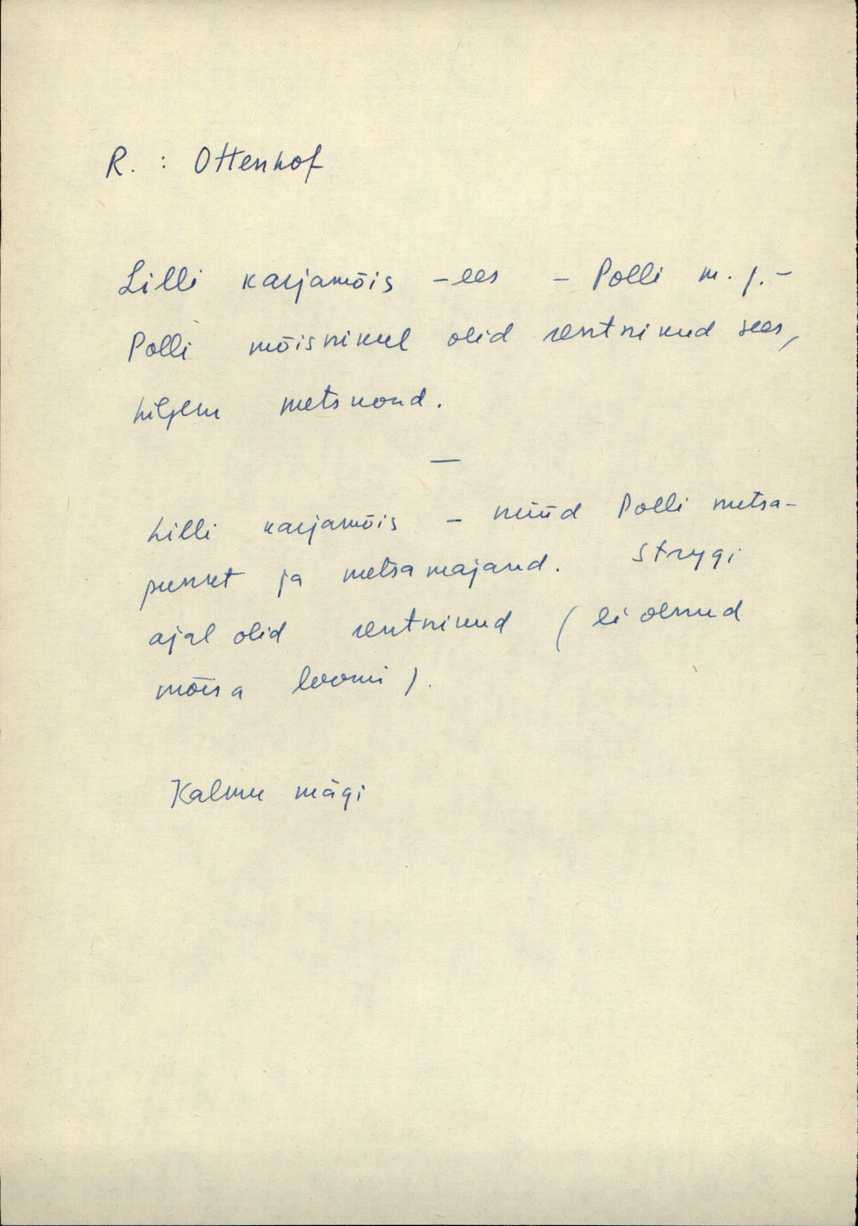 R. : Ottenhof
Lilli karjamõis – ees – Polli m. j. –
Polli mõisnikul olid rentnikud sees,
hiljem metskond.
—
Lilli karjamõis – nüüd Polli metsa-
punkt ja metsamajand. Strygi
ajal olid rentnikud (ei olnud
mõisa loomi).
Kalmu mägi